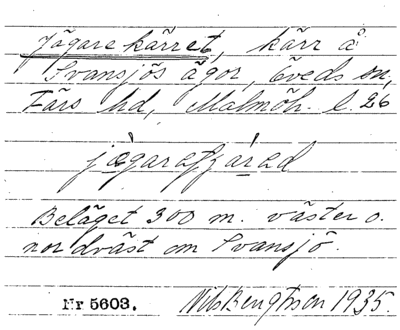 Jägarekärret, kärr å
Svansjös ägor, Öveds sn,
Färs hd, Malmöh. l. 26
Beläget 300 m. väster o.
nordväst om Svansjö.
Nr 5603. Nils Bengtsson 1935.